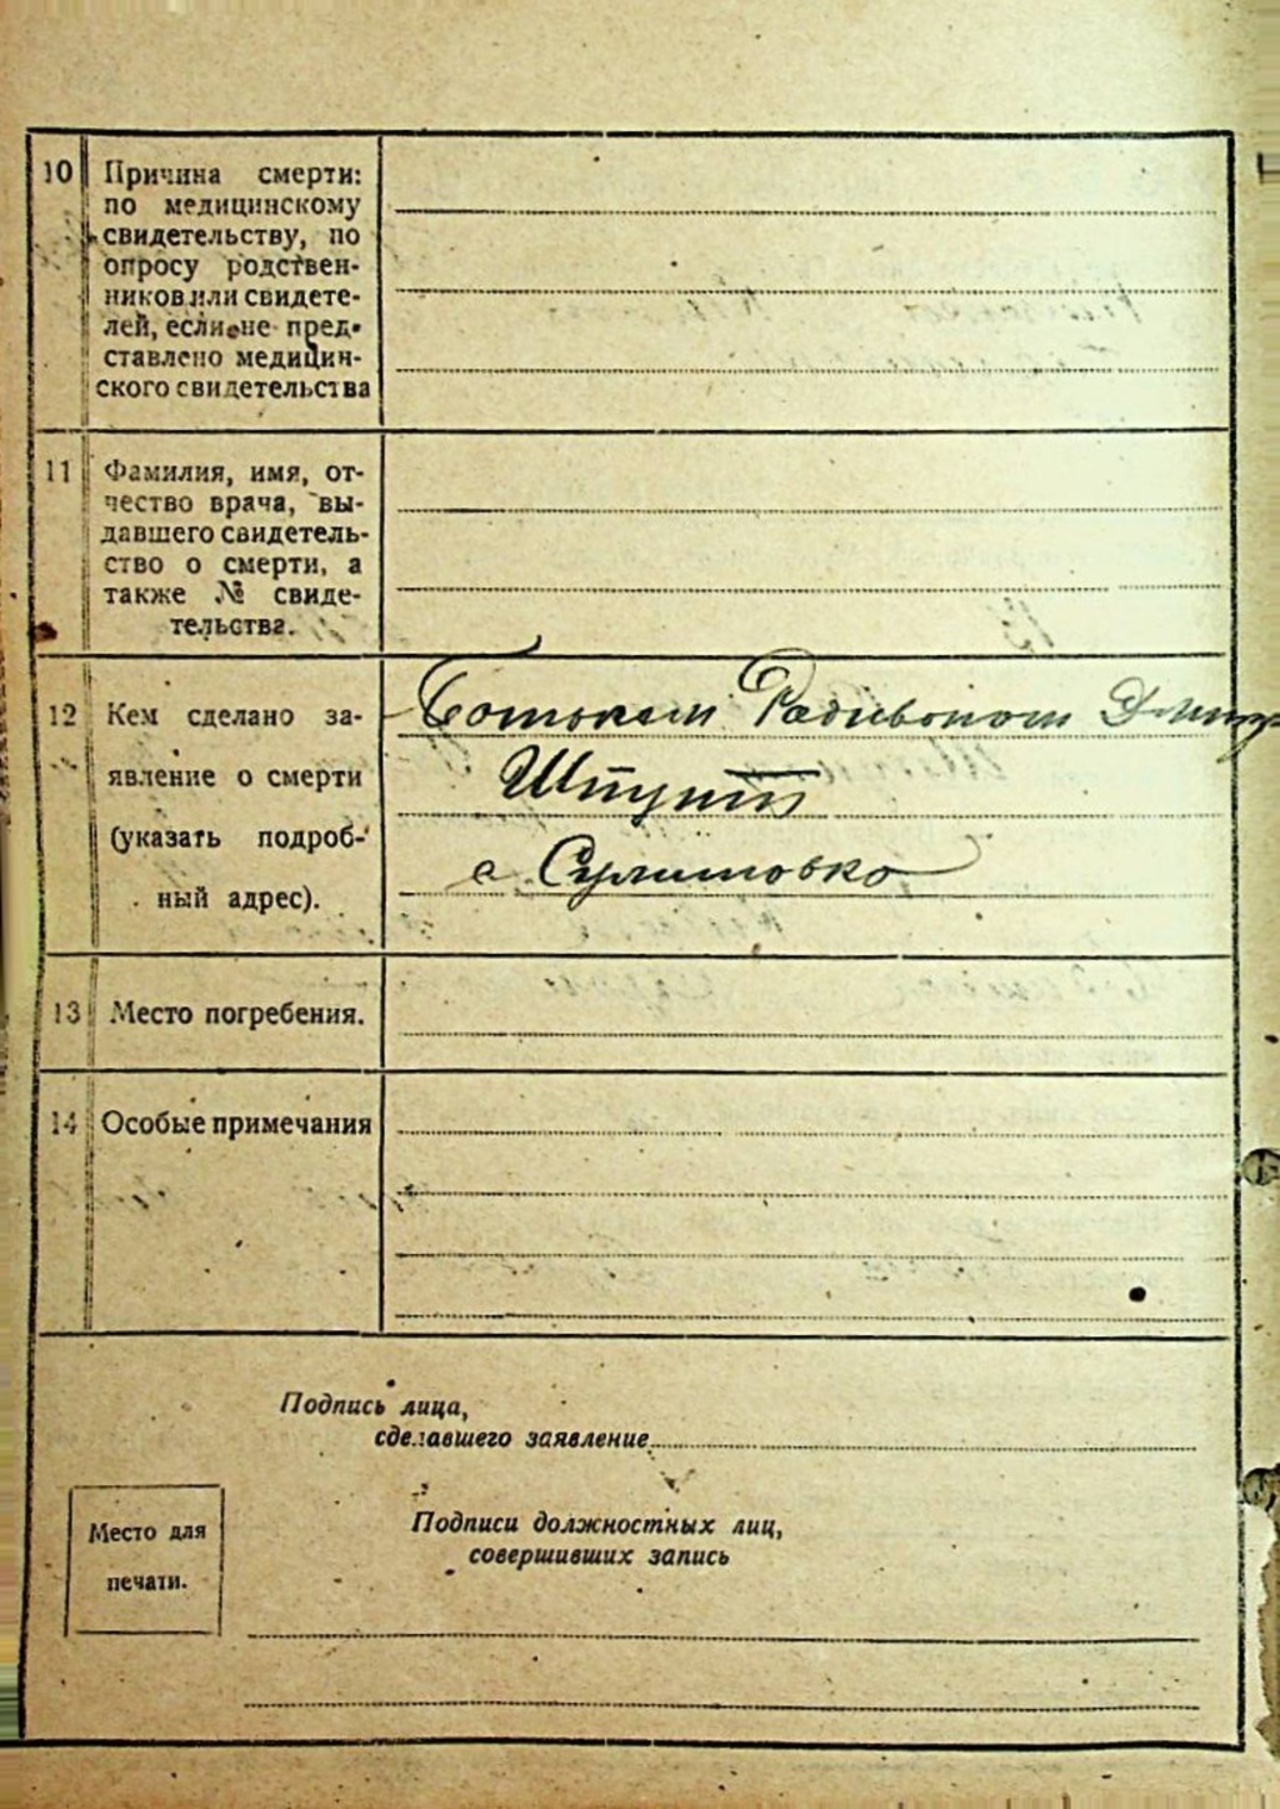 10 Причина смерти:
по медицинскому
свидетельству, по
опросу родствен-
ников или свидете-
лей, если не пред-
ставлено медицин-
ского свидетельства
11 Фамилия, имя, от-
чество врача, вы-
давшего свидетель-
ство о смерти, а
также № свиде-
тельства.
12 Кем сделано за-
явление о смерти
(указать подроб-
ный адрес).
13 Место погребения.
14 Особые примечания
Подпись лица,
сделавшего заявление
Подписи должностных лиц,
совершивших запись
Место для
печати.